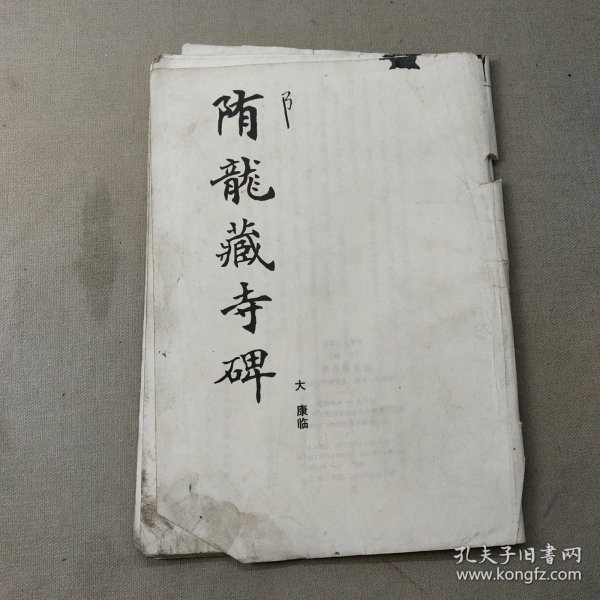 隋龍藏寺碑
大康临
孔夫子旧书网
www.kongfz.com